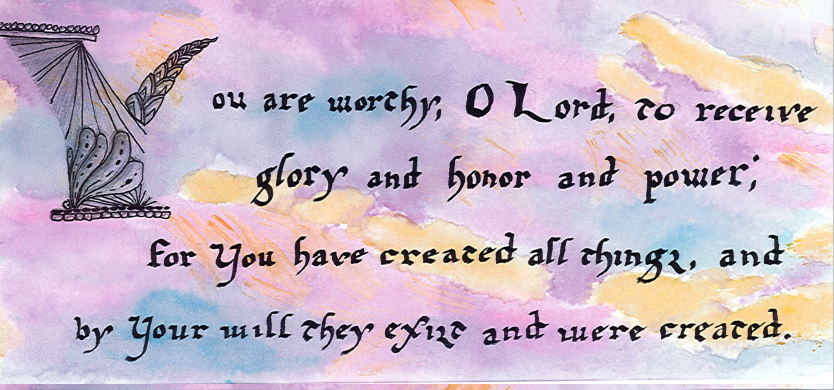 You are worthy, O Lord, to receive
glory and honor and power;
for You have created all things, and
by Your will they exist and were created.